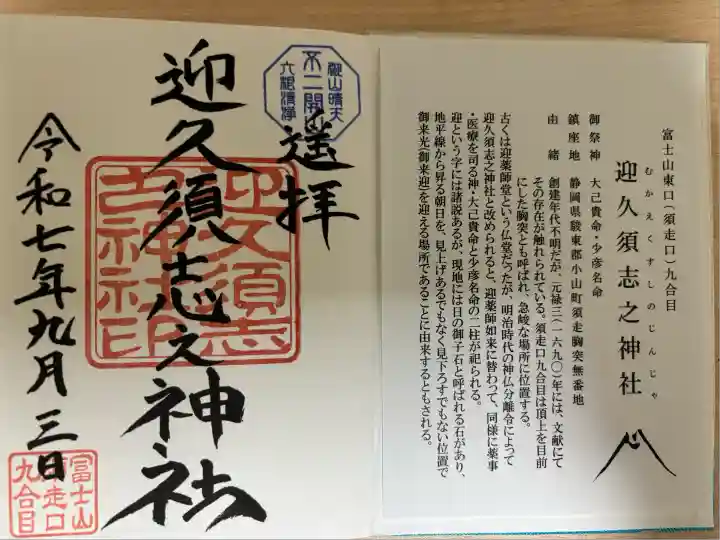 富士山東口(須走口)九合目
むかえくすしのじんじゃ
迎久須志之神社
御祭神 大己貴命・少彦名命
鎮座地 静岡県駿東郡小山町須走胸突無番地
由緒 創建年代不明だが、元禄三(一六九〇)年には、文献にて
その存在が触れられている。須走口九合目は頂上を目前
にした胸突とも呼ばれ、急峻な場所に位置する。
古くは迎薬師堂という仏堂だったが、明治時代の神仏分離令によって
迎久須志之神社と改められると、迎薬師如来に替わって、同様に薬事
・医療を司る神・大己貴命と少彦名命の二柱が祀られる。
迎という字には諸説あるが、現地には日の御子石と呼ばれる石があり、
地平線から昇る朝日を、見上げあるでもなく見下ろすでもない位置で
御来光(御来迎)を迎える場所であることに由来するともされる。
遥拝
迎久須志之神社
令和七年九月三日
御山晴天
不二開
六根清浄
迎久須志
之神社印
富士山
須走口
九合目